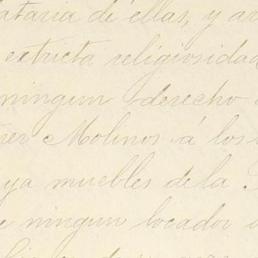 ataria de ellas, y ar
extricta religiosidad
ningun derecho
Tres Molinos á los
ya muebles de la
ningun locador